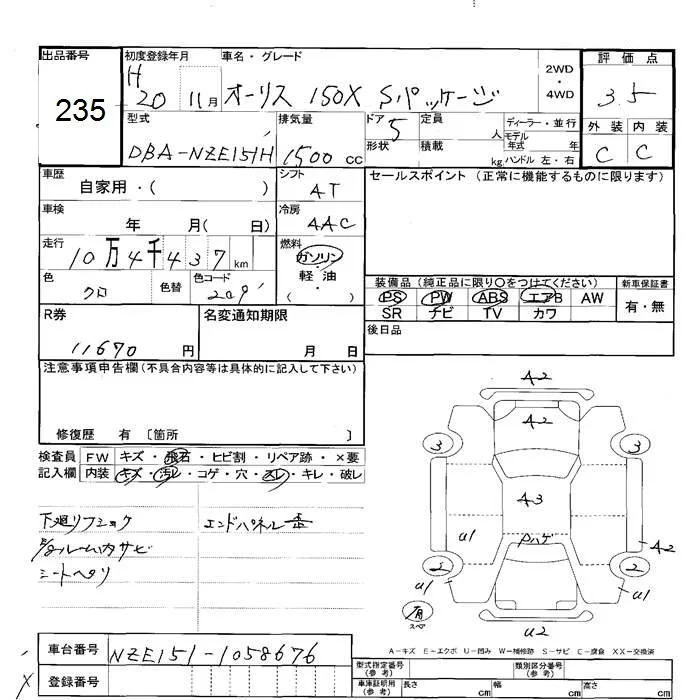 出品番号
235
初度登録年月
H 20 11月
車名・グレード
オーリス 150X Sパッケージ
2WD
・
4WD
評価点
3.5
外装 内装
C C
型式
DBA-NZE151H
排気量
1500 cc
ドア 5
形状
定員 人
積載 kg
ディーラー・並行
モデル年式 年
ハンドル 左・右
車歴
自家用・( )
シフト
AT
車検
年 月( 日)
冷房
AAC
走行
10万4千437km
燃料
ガソリン
・
軽油
・
( )
色
クロ
色替
色コード
209
セールスポイント (正常に機能するものに限ります)
装備品 (純正品に限り〇をつけてください)
PS PW ABS エアB AW
SR ナビ TV カワ
新車保証書
有・無
後日品
R券
11670 円
名変通知期限
月 日
注意事項申告欄 (不具合内容等は具体的に記入して下さい)
修復歴 有 〔箇所 〕
検査員記入欄
FW キズ・飛石・ヒビ割・リペア跡・×要
内装 キズ・汚レ・コゲ・穴・スレ・キレ・破レ
下廻リフショク
エンドパネル歪
シートヘタリ
A2
A2
3
3
A3
Pハゲ
u1
A2
2
2
u1
u1
有
スペア
u2
A-キズ E-エクボ U-凹み W-補修跡 S-サビ C-腐食 XX-交換済
車台番号
NZE151-1058676
登録番号
型式指定番号(参考)
類別区分番号(参考)
車庫証明用(参考)
長さ cm
幅 cm
高さ cm